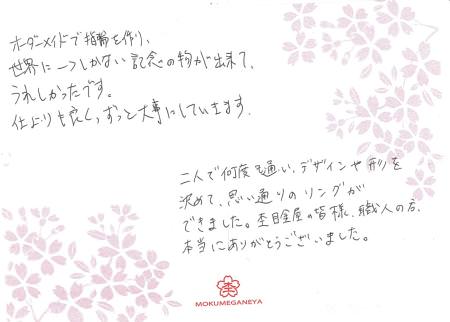 オーダーメイドで指輪を作り、
世界に一つしかない記念の物が出来て、
うれしかったです。
仕上りも良く、ずっと大事にしていきます。
二人で何度も通い、デザインや形を
決めて、思い通りのリングが
できました。杢目金屋の皆様、職人の方、
本当にありがとうございました。
杢
MOKUMEGANEYA